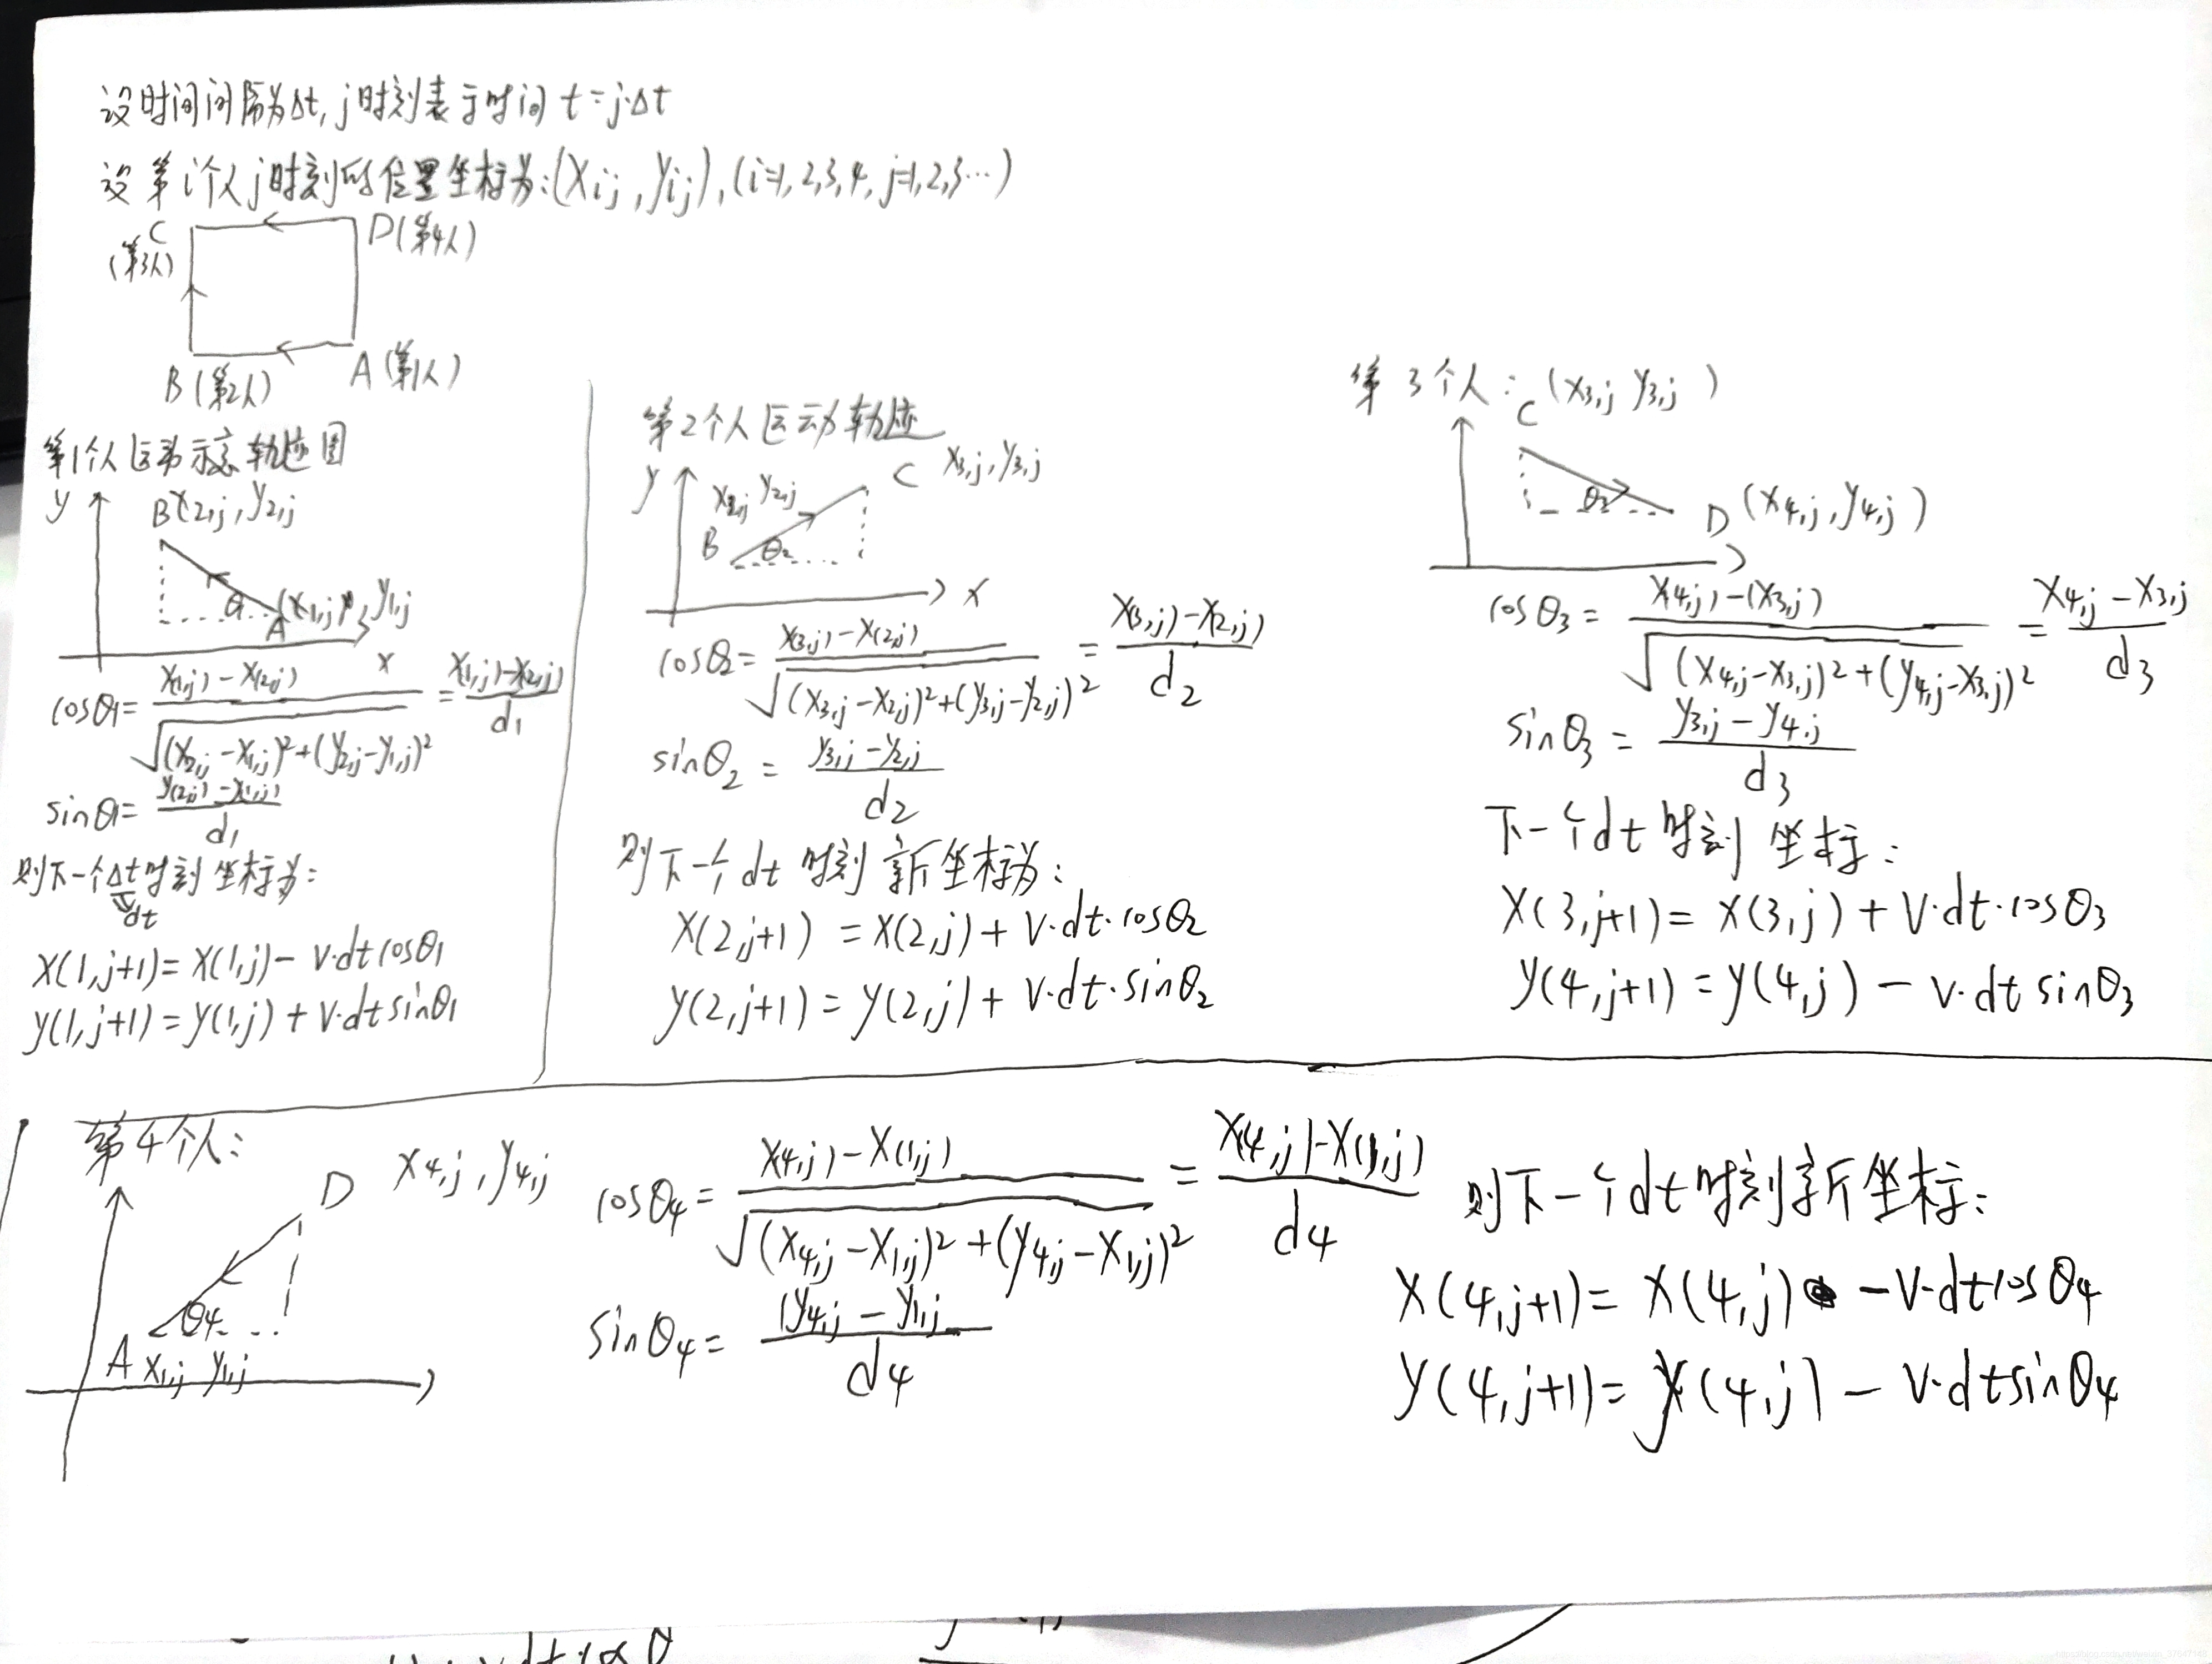 设时间间隔为Δt, j时刻表示时间 t=j·Δt
设第i个人j时刻的位置坐标为:(Xij, yij), (i=1,2,3,4, j=1,2,3…)
C
(第3人)
D(第4人)
B(第2人)
A(第1人)
第1个人运动示意轨迹图
y
B(X2,j, y2,j
θ1
A
(X1,j, y1,j
x
cosθ1= X(1,j)-X(2,j) / √(X2,j-X1,j)²+(y2,j-y1,j)² = X(1,j)-X(2,j) / d1
sinθ1= y(2,j)-y(1,j) / d1
则下一个Δt时刻坐标为:
dt
X(1,j+1)=X(1,j)- v·dtcosθ1
y(1,j+1)=y(1,j)+v·dtsinθ1
第2个人运动轨迹
y
X2,j y2,j
C X3,j, y3,j
B
θ2
x
cosθ2= X(3,j)-X(2,j) / √(X3,j-X2,j)²+(y3,j-y2,j)² = X(3,j)-X(2,j) / d2
sinθ2 = y3,j-y2,j / d2
则下一个dt时刻新坐标为:
X(2,j+1) =X(2,j)+ v·dt·cosθ2
y(2,j+1)=y(2,j)+ v·dt·sinθ2
第3个人: (X3,j y3,j)
C
D (X4,j, y4,j)
cosθ3= X(4,j)-(X3,j) / √(X4,j-X3,j)²+(y4,j-X3,j)² = X4,j-X3,j / d3
sinθ3 = y3,j-y4,j / d3
下一个dt时刻坐标:
X(3,j+1)= X(3,j)+ v·dt·cosθ3
y(4,j+1)=y(4,j) - v·dt sinθ3
第4个人:
D X4,j, y4,j
θ4
A X1,j y1,j
cosθ4= X(4,j)-X(1,j) / √(X4,j-X1,j)²+(y4,j-X1,j)² = X(4,j)-X(1,j) / d4
sinθ4= (y4,j-y1,j / d4
则下一个dt时刻新坐标:
X(4,j+1)= X(4,j) -v·dtcosθ4
y(4,j+1)= y(4,j) - v·dtsinθ4